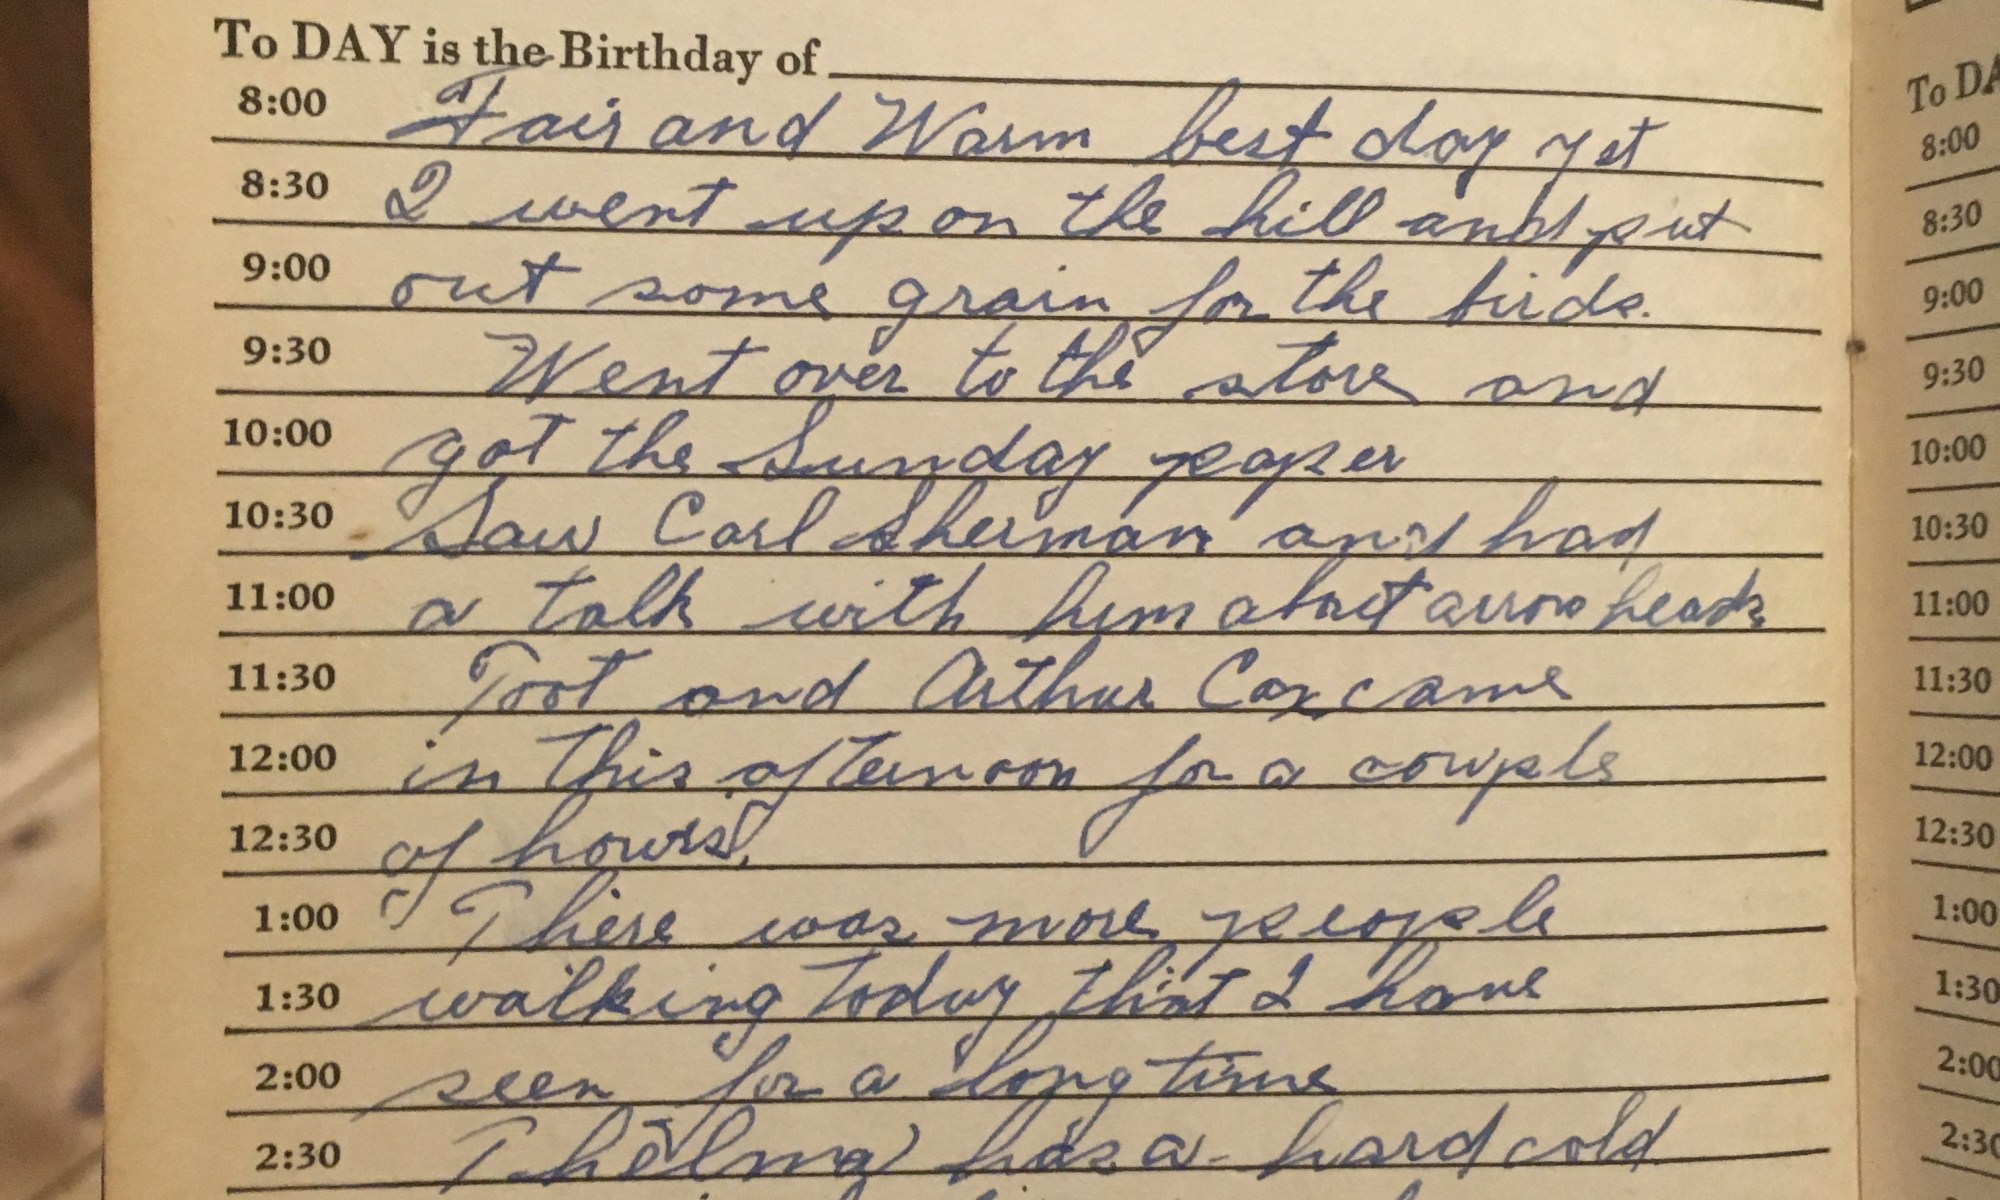 To DAY is the Birthday of
8:00 Fair and Warm best day yet
8:30 I went up on the hill and put
9:00 out some grain for the birds.
9:30 Went over to the store and
10:00 got the Sunday paper
10:30 Saw Carl Sherman and had
11:00 a talk with him about arrow heads
11:30 Toot and Arthur Cox came
12:00 in this afternoon for a couple
12:30 of hours.
1:00 There was more people
1:30 walking today that I have
2:00 seen for a long time
2:30 Thelma has a hard cold
To DA
8:00
8:30
9:00
9:30
10:00
10:30
11:00
11:30
12:00
12:30
1:00
1:30
2:00
2:30